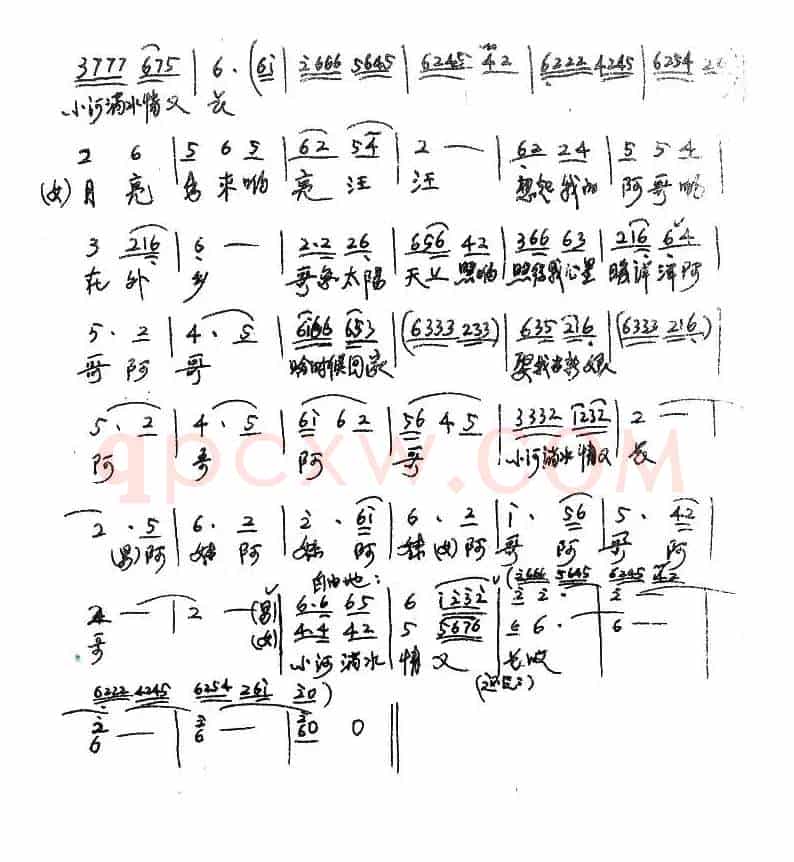 3777 675 | 6. (6i | 2666 5645 | 6245 42 | 6222 4245 | 6254 26
小河淌水情义长
2 6 | 5 6 5 | 62 54 | 2 — | 62 24 | 5 5 4 |
(女)月亮出来哟亮汪汪 想起我的阿哥哟
3 216 | 6 — | 2.2 26 | 656 42 | 366 63 | 216 64 |
在外乡 哥像太阳天上照哟照得我心里暖洋洋阿
5. 2 | 4. 5 | 6i66 653 | (6333 233) | 635 216 | (6333 216) |
哥阿哥 啥时候回家 娶我当新娘
5. 2 | 4. 5 | 6i 62 | 56 4 5 | 3332 1232 | 2 — |
阿哥阿哥 小河淌水情义长
qpcxw.COM
2. 5 | 6. 2 | 2. 6i | 6. 2 | i. 56 | 5. 4.2 |
(男)阿妹阿妹阿妹(女)阿哥阿哥阿
自由地:
(2666 5645 6245 42
2 — | 2 — (男) | 6.6 65 | 6 i232 | 2 2. | 2 — |
哥 (女) | 4.4 42 | 5 5676 | 6. | 6 — |
小河淌水情义长
6222 4245 6254 26i 20)
2 — | 2 — | 20 0 ||
6 — | 6 — | 60